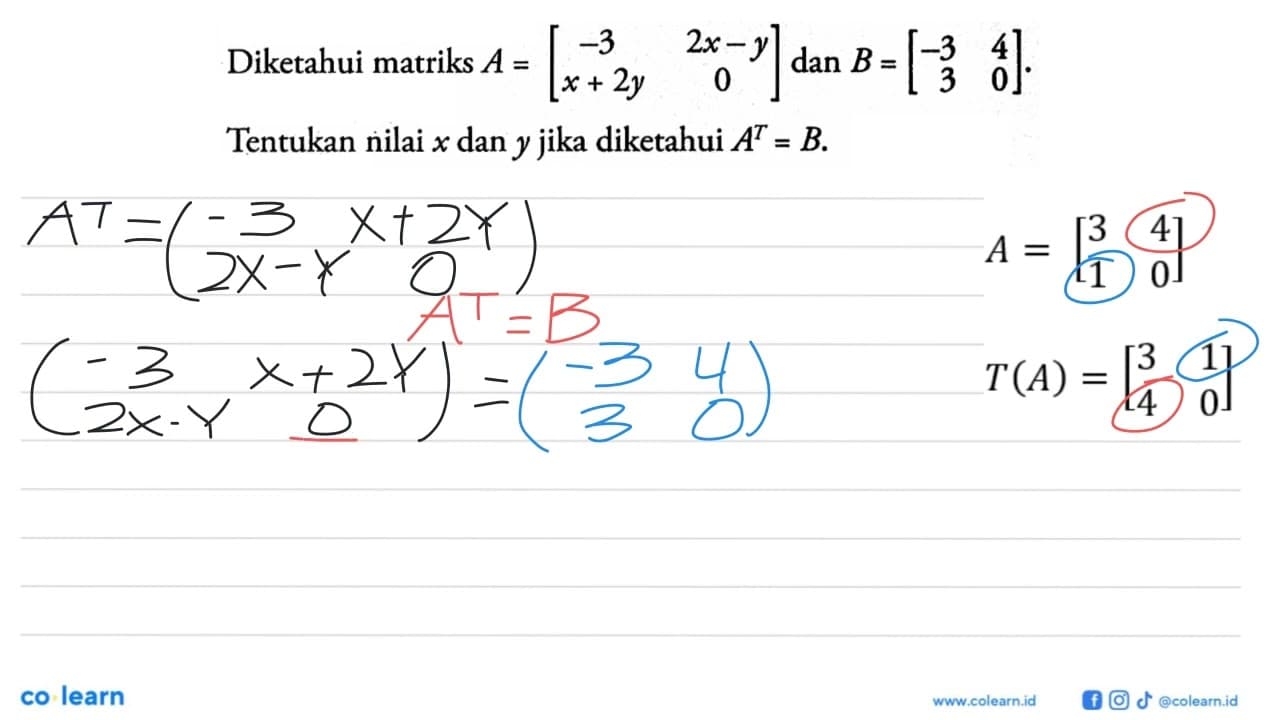 Diketahui matriks A = [-3 2x – y
x + 2y 0] dan B = [-3 4
3 0].
Tentukan nilai x dan y jika diketahui Aᵀ = B.
Aᵀ = (-3 x+2y
2x-y 0)
A = [3 4
1 0]
Aᵀ = B
(-3 x+2y
2x-y 0) = (-3 4
3 0)
T(A) = [3 1
4 0]
co learn
www.colearn.id
@colearn.id